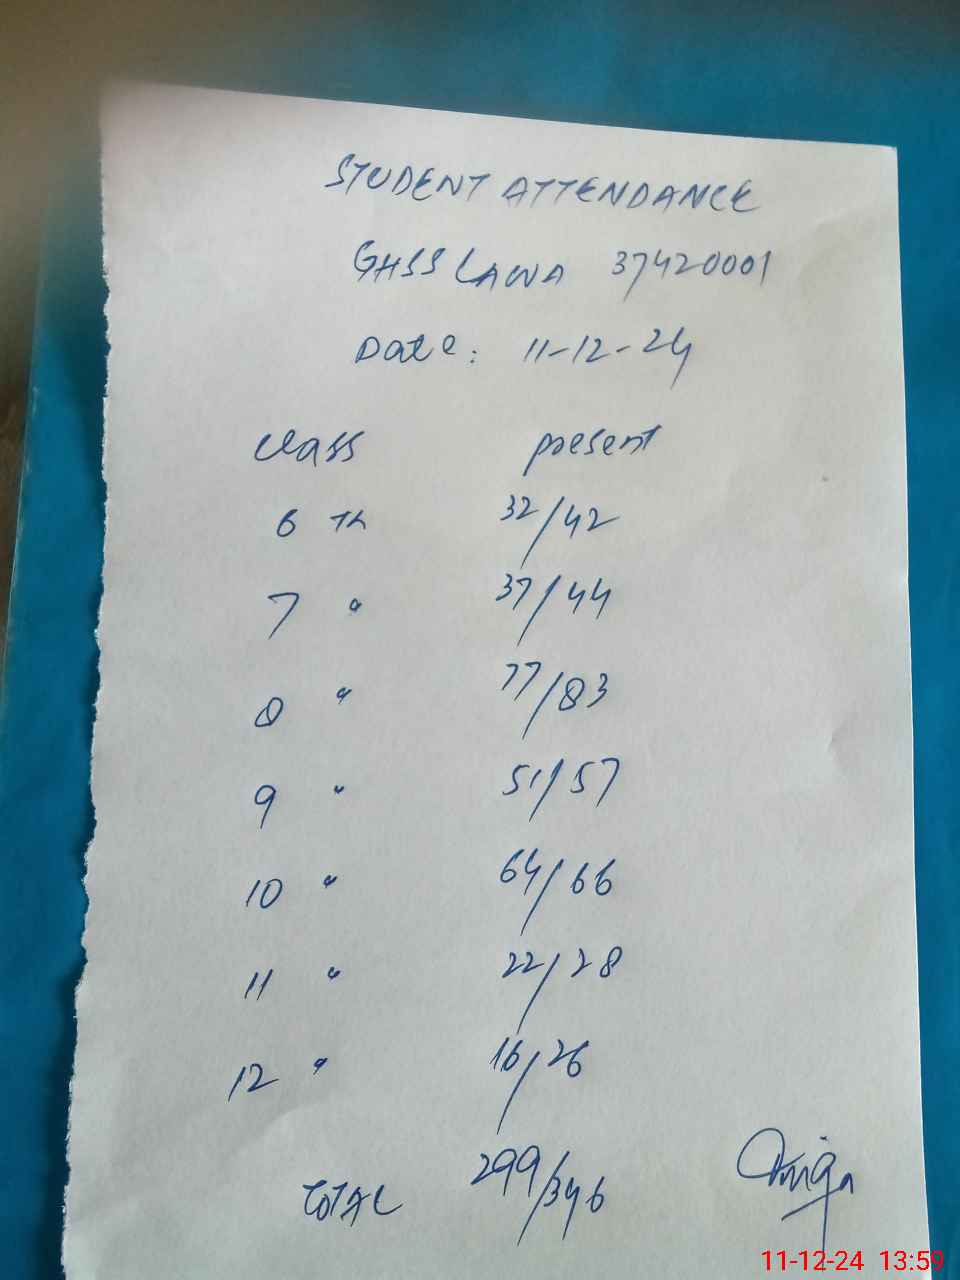 STUDENT ATTENDANCE
GHSS LAWA 37420001
Date: 11-12-24
class present
6 Th 32/42
7 " 37/44
8 " 77/83
9 " 51/57
10 " 64/66
11 " 22/28
12 " 16/26
TOTAL 299/346
11-12-24 13:59